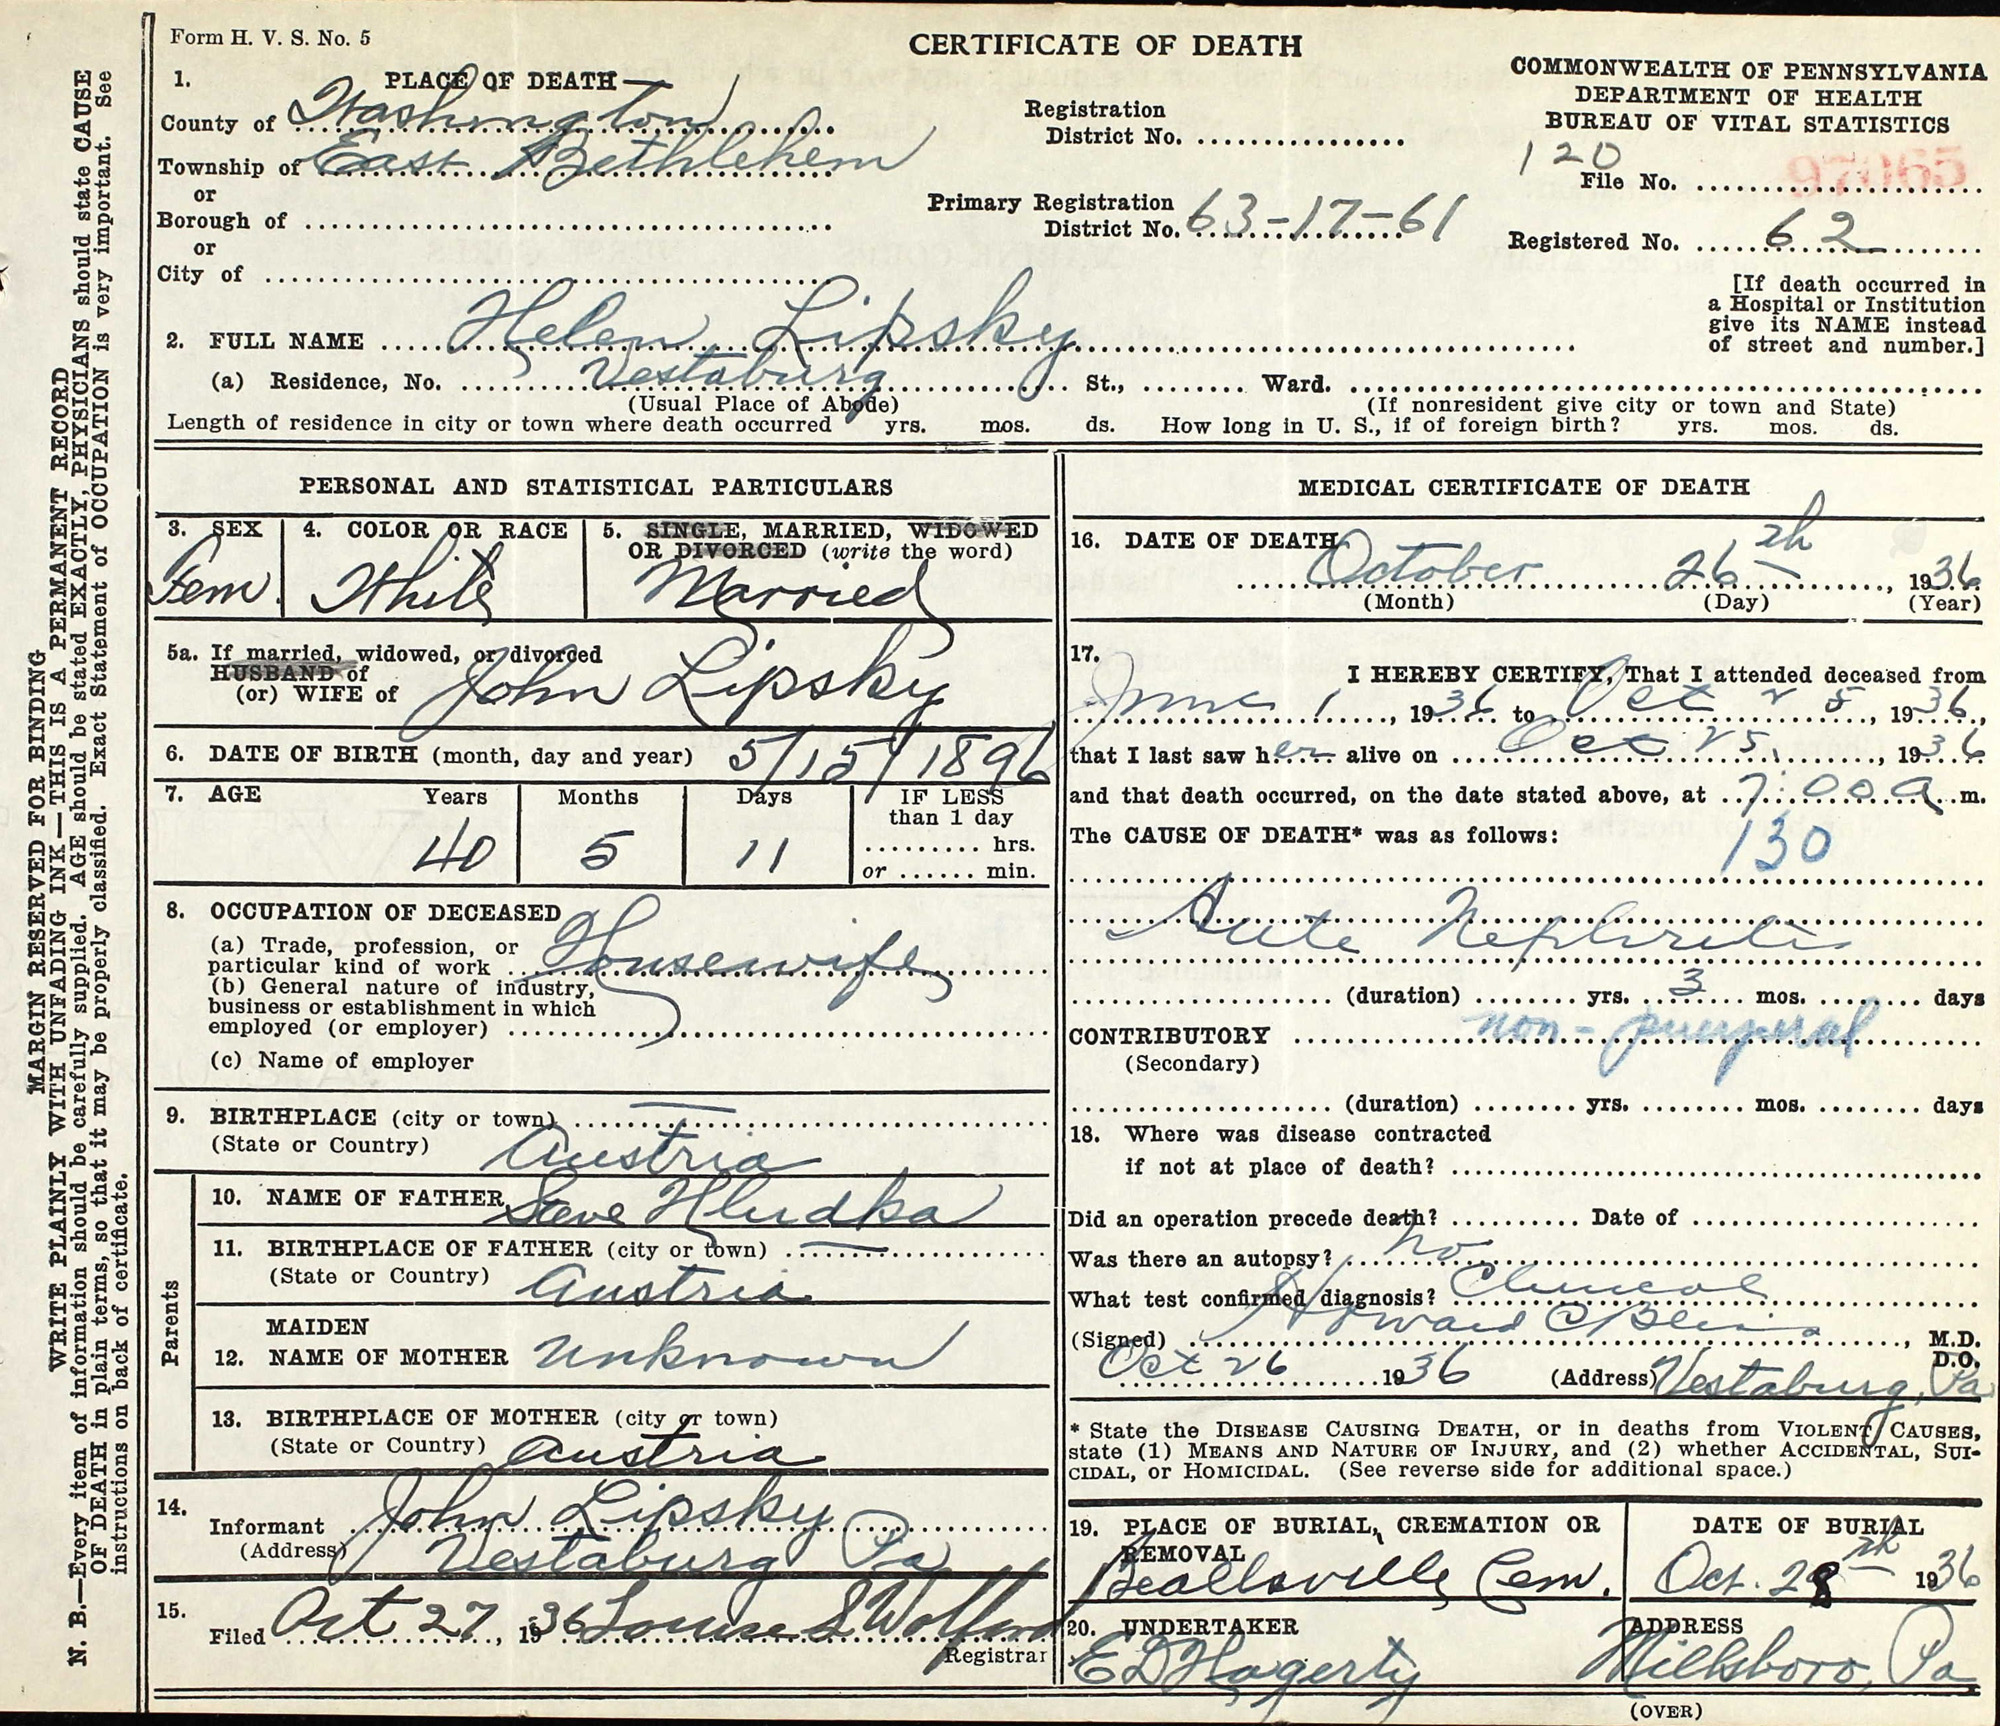 Form H. V. S. No. 5
CERTIFICATE OF DEATH
COMMONWEALTH OF PENNSYLVANIA
DEPARTMENT OF HEALTH
BUREAU OF VITAL STATISTICS
1. PLACE OF DEATH
County of Washington
Township of East Bethlehem
or
Borough of
or
City of
Registration
District No.
Primary Registration
District No. 63-17-61
120
File No.
Registered No. 62
[If death occurred in
a Hospital or Institution
give its NAME instead
of street and number.]
2. FULL NAME Helen Lipsky
(a) Residence, No. Vestaburg St., Ward.
(Usual Place of Abode) (If nonresident give city or town and State)
Length of residence in city or town where death occurred yrs. mos. ds. How long in U. S., if of foreign birth? yrs. mos. ds.
PERSONAL AND STATISTICAL PARTICULARS
3. SEX
Fem.
4. COLOR OR RACE
White
5. SINGLE, MARRIED, WIDOWED
OR DIVORCED (write the word)
Married
5a. If married, widowed, or divorced
HUSBAND of
(or) WIFE of John Lipsky
6. DATE OF BIRTH (month, day and year) 5/15/1896
7. AGE Years Months Days IF LESS
than 1 day
40 5 11 hrs.
or min.
8. OCCUPATION OF DECEASED
(a) Trade, profession, or
particular kind of work Housewife
(b) General nature of industry,
business or establishment in which
employed (or employer)
(c) Name of employer
9. BIRTHPLACE (city or town)
(State or Country) Austria
Parents
10. NAME OF FATHER Steve Hludka
11. BIRTHPLACE OF FATHER (city or town)
(State or Country) Austria
MAIDEN
12. NAME OF MOTHER Unknown
13. BIRTHPLACE OF MOTHER (city or town)
(State or Country) Austria
14.
Informant John Lipsky
(Address) Vestaburg Pa
15.
Filed Oct 27, 1936 Louise S Wolford
Registrar
MEDICAL CERTIFICATE OF DEATH
16. DATE OF DEATH
October 26th, 1936
(Month) (Day) (Year)
17.
I HEREBY CERTIFY, That I attended deceased from
June 1, 1936 to Oct 25, 1936,
that I last saw her alive on Oct 25, 1936
and that death occurred, on the date stated above, at 7:00 a m.
The CAUSE OF DEATH* was as follows:
130
Acute Nephritis
(duration) yrs. 3 mos. days
CONTRIBUTORY non-puerperal
(Secondary)
(duration) yrs. mos. days
18. Where was disease contracted
if not at place of death?
Did an operation precede death? Date of
Was there an autopsy? no
What test confirmed diagnosis? Clinical
(Signed) Howard C , M.D.
D.O.
Oct 26 1936 (Address) Vestaburg, Pa
* State the DISEASE CAUSING DEATH, or in deaths from VIOLENT CAUSES,
state (1) MEANS AND NATURE OF INJURY, and (2) whether ACCIDENTAL, SUI-
CIDAL, or HOMICIDAL. (See reverse side for additional space.)
19. PLACE OF BURIAL, CREMATION OR
REMOVAL
Beallsville Cem.
DATE OF BURIAL
Oct. 28th 1936
20. UNDERTAKER
E D Hagerty
ADDRESS
Millsboro, Pa
(OVER)
MARGIN RESERVED FOR BINDING
WRITE PLAINLY WITH UNFADING INK—THIS IS A PERMANENT RECORD
N. B.—Every item of information should be carefully supplied. AGE should be stated EXACTLY, PHYSICIANS should state CAUSE
OF DEATH in plain terms, so that it may be properly classified. Exact Statement of OCCUPATION is very important. See
instructions on back of certificate.